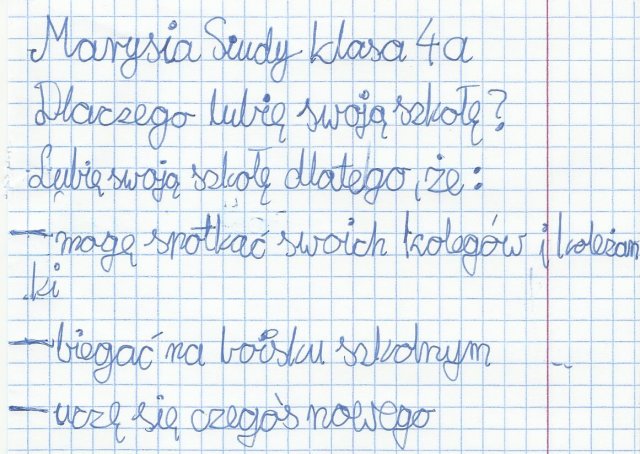 Marysia Siudy klasa 4a
Dlaczego lubię swoją szkołę?
Lubię swoją szkołę dlatego, że:
– mogę spotkać swoich kolegów i koleżan
ki
– biegać na boisku szkolnym
– uczę się czegoś nowego